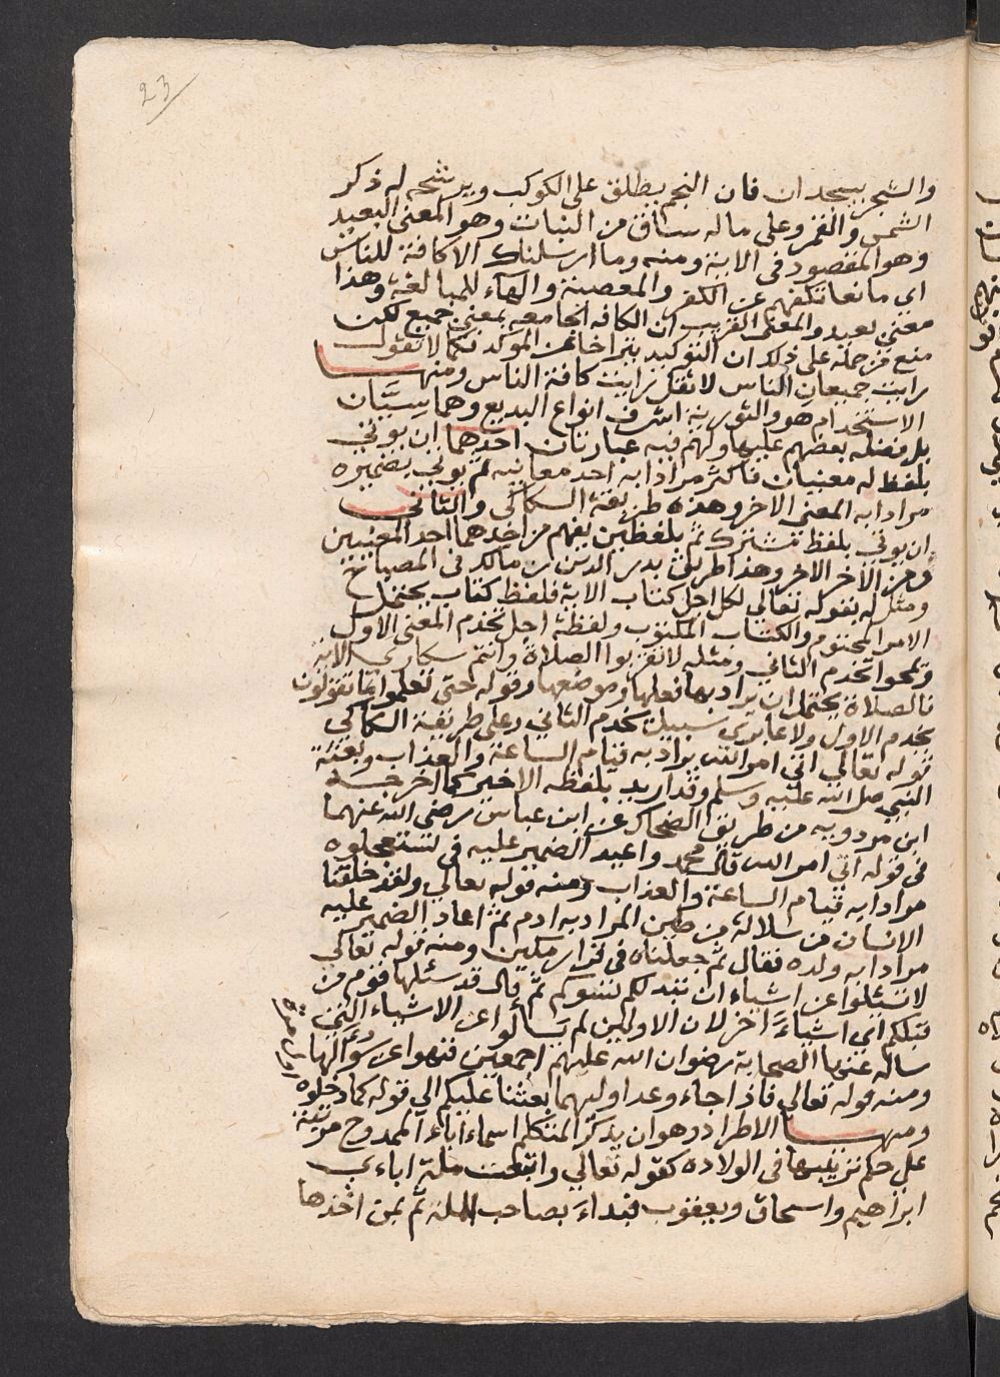 23
والشجر يسجدان فان النجم يطلق على الكوكب ويرشحه له ذكر
الشمس والقمر وعلى ما له ساق من النبات وهو المعنى البعيد
وهو المقصود فى الاية ومنه وما ارسلناك الا كافة للناس
اى مانعا تكفهم عن الكفر والمعصية والهاء للمبالغة وهذا
معنى بعيد والمعنى القريب ان الكافه الجامعه بمعنى جميع لكن
منع من حمله على ذلك ان التوكيد يتراخا عن الموكد فكما لا تقول
رايت جميعا الناس لا تقل رايت كافة الناس ومنهـــا
الاستخدام هو والتورية اشرف انواع البديع وهما سيّان
بل فضله بعضهم عليها ولهم فيه عبارتان احدهما ان يوتي
بلفظ له معنيان فاكثر مرادا به احد معانيه ثم يوتي بضميره
مرادا به المعنى الاخر وهذه طريقة السكاكى والثانى
ان يوتي بلفظ مشترك ثم بلفظين يفهم من احدهما احد المعنيين
ومن الاخر الاخر وهذا طريق بدر الدين بن مالك فى المصباح
ومثل له بقوله تعالي لكل اجل كتاب الاية فلفظ كتاب يحتمل
الامر المحتوم والكتاب المكتوب ولفظة اجل تخدم المعنى الاول
ويمحوا تخدم الثاني ومثله لا تقربوا الصلاة وانتم سكارى الاية
فالصلاة يحتمل ان يراد بها فعلها وموضعها وقوله حتى تعلموا ما تقولون
يخدم الاول ولا عابرى سبيل يخدم الثاني وعلى طريقة السكاكى
قوله تعالي اتى امر الله يراد به قيام الساعة والعذاب وبعثة
النبي صلى الله عليه وسلم وقد اريد بلفظه الاخير كما اخرجـه
ابن مردويه من طريق الضحاك عن ابن عباس رضى الله عنهما
فى قوله اتى امر الله قال محمد واعيد الضمير عليه فى تستعجلوه
مرادا به قيام الساعة والعذاب ومنه قوله تعالي ولقد خلقنا
الانسان من سلالة من طين المراد به ادم ثم اعاد الضمير عليه
مرادا به ولده فقال ثم جعلناه فى قرار مكين ومنه قوله تعالى
لا تسئلوا عن اشياء ان تبد لكم تسؤكم ثم قال قد سئلها قوم من
قبلكم اى اشياءً اخر لان الاولين لم يسالوا عن الاشياء التى
ساله عنها الصحابة رضوان الله عليهم اجمعين فنهوا عن سؤالها
ومنه قوله تعالي فاذا جاء وعد اوليهما بعثنا عليكم الي قوله كما دخلوه
اول مرة
ومنهـــا الاطراد وهو ان يذكر المتكلم اسماء اباء الممدوح مرتبة
على حكم ترتيبها فى الولاده كقوله تعالي واتبعت ملة اباءي
ابراهيم واسحاق ويعقوب فبداء بصاحب الملة ثم بمن اخذها